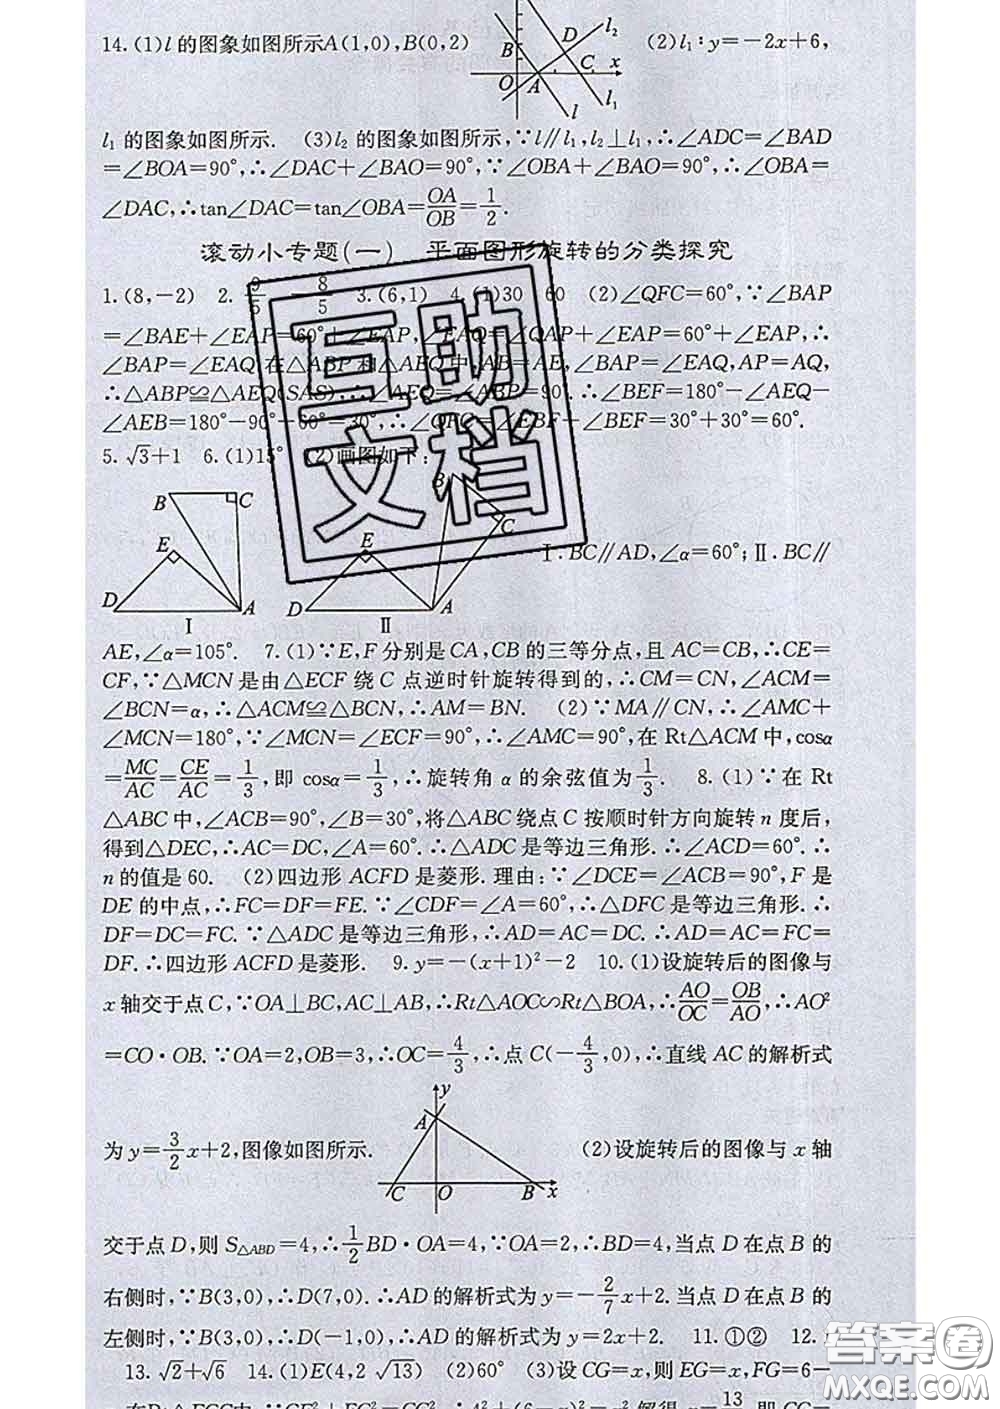 14. (1)l 的图象如图所示A(1,0),B(0,2)
B D l₂
O A C x
l l₁
(2)l₁:y=-2x+6,
l₁ 的图象如图所示. (3)l₂ 的图象如图所示,∵l∥l₁,l₂⊥l₁,∴∠ADC=∠BAD
=∠BOA=90°,∴∠DAC+∠BAO=90°,∵∠OBA+∠BAO=90°,∴∠OBA=
∠DAC,∴tan∠DAC=tan∠OBA=OA/OB=1/2.
滚动小专题(一) 平面图形旋转的分类探究
1. (8,-2) 2. 9/5 8/5 3. (6,1) 4. (1)30 60 (2)∠QFC=60°,∵∠BAP
=∠BAE+∠EAP=60°+∠EAP,∠EAQ=∠QAP+∠EAP=60°+∠EAP,∴
∠BAP=∠EAQ.在△ABP和△AEQ中,AB=AE,∠BAP=∠EAQ,AP=AQ,
∴△ABP≌△AEQ(SAS).∴∠AEQ=∠ABP=90°.∴∠BEF=180°-∠AEQ-
∠AEB=180°-90°-60°=30°,∴∠QFC=∠EBF+∠BEF=30°+30°=60°.
5. √3+1 6. (1)15° (2)画图如下:
B C E D A Ⅰ
B C E D A Ⅱ
Ⅰ. BC∥AD,∠α=60°;Ⅱ. BC∥
AE,∠α=105°. 7. (1)∵E,F分别是CA,CB的三等分点,且AC=CB,∴CE=
CF,∵△MCN是由△ECF绕C点逆时针旋转得到的,∴CM=CN,∠ACM=
∠BCN=α,∴△ACM≌△BCN,∴AM=BN. (2)∵MA∥CN,∴∠AMC+
∠MCN=180°,∵∠MCN=∠ECF=90°,∴∠AMC=90°,在Rt△ACM中,cosα
=MC/AC=CE/AC=1/3,即 cosα=1/3,∴旋转角α的余弦值为1/3. 8. (1)∵在 Rt
△ABC中,∠ACB=90°,∠B=30°,将△ABC绕点C按顺时针方向旋转n度后,
得到△DEC,∴AC=DC,∠A=60°.∴△ADC是等边三角形.∴∠ACD=60°.∴
n的值是60. (2)四边形ACFD是菱形.理由:∵∠DCE=∠ACB=90°,F是
DE的中点,∴FC=DF=FE.∵∠CDF=∠A=60°,∴△DFC是等边三角形.∴
DF=DC=FC.∵△ADC是等边三角形,∴AD=AC=DC.∴AD=AC=FC=
DF.∴四边形ACFD是菱形. 9. y=-(x+1)²-2 10. (1)设旋转后的图像与
x轴交于点C,∵OA⊥BC,AC⊥AB,∴Rt△AOC∽Rt△BOA,∴AO/OC=OB/AO,∴AO²
=CO·OB.∵OA=2,OB=3,∴OC=4/3,∴点C(-4/3,0),∴直线AC的解析式
为y=3/2x+2,图像如图所示.
y A C O B x
(2)设旋转后的图像与x轴
交于点D,则S△ABD=4,∴1/2BD·OA=4,∵OA=2,∴BD=4,当点D在点B的
右侧时,∵B(3,0),∴D(7,0).∴AD的解析式为y=-2/7x+2.当点D在点B的
左侧时,∵B(3,0),∴D(-1,0),∴AD的解析式为y=2x+2. 11. ①② 12.
13. √2+√6 14. (1)E(4,2√13) (2)60° (3)设CG=x,则EG=x,FG=6-
互助文档
答案圈
MXQE.COM